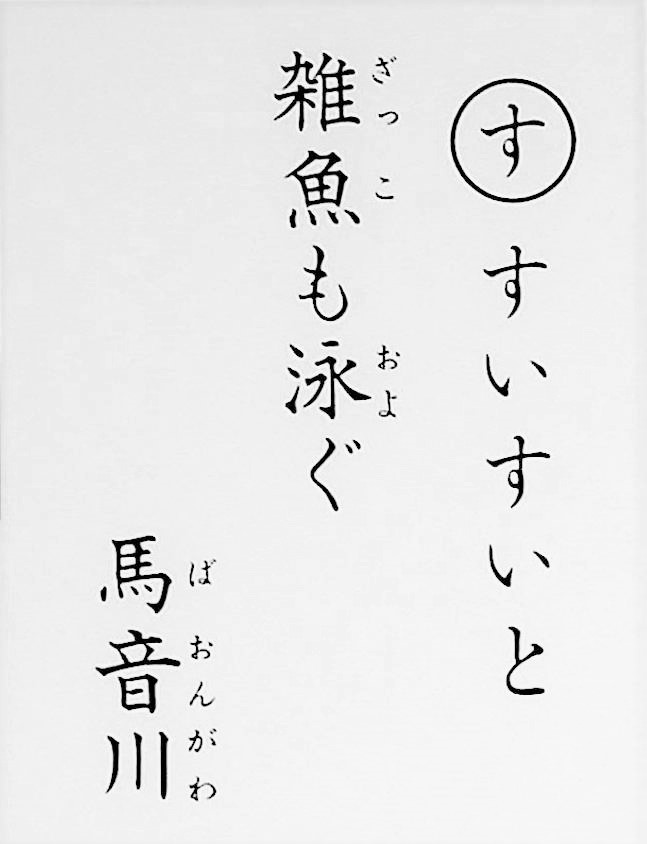 ㋜ すいすいと
雑魚も泳ぐ
ざっこ およ
馬音川
ばおんがわ